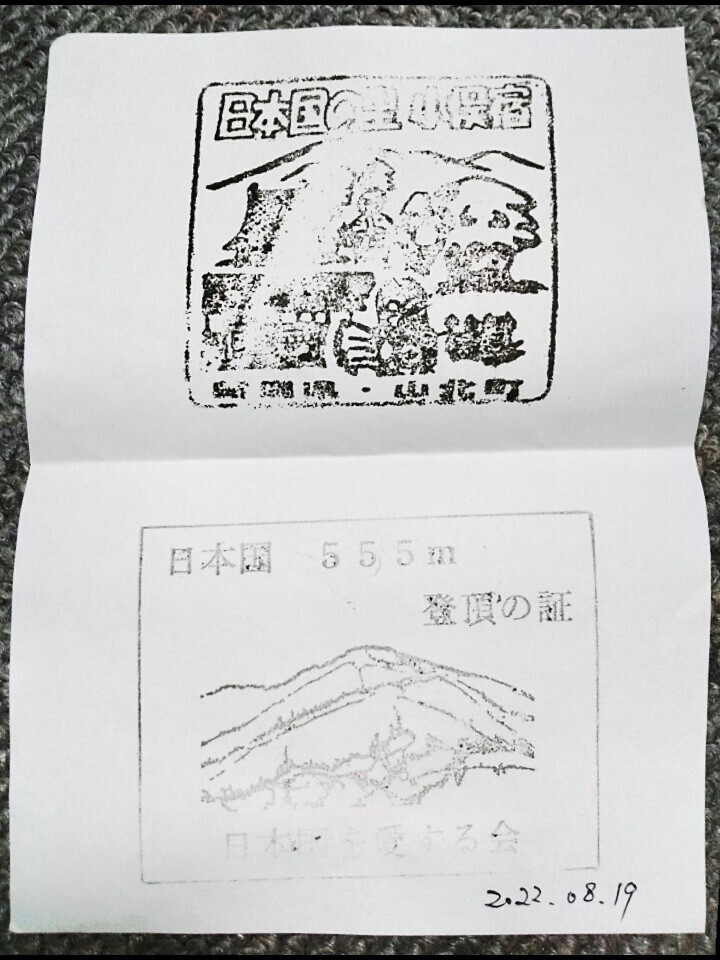 日本国の里 小俣宿
新潟県・山北町
日本国 555m
登頂の証
日本国を愛する会
2022.08.19